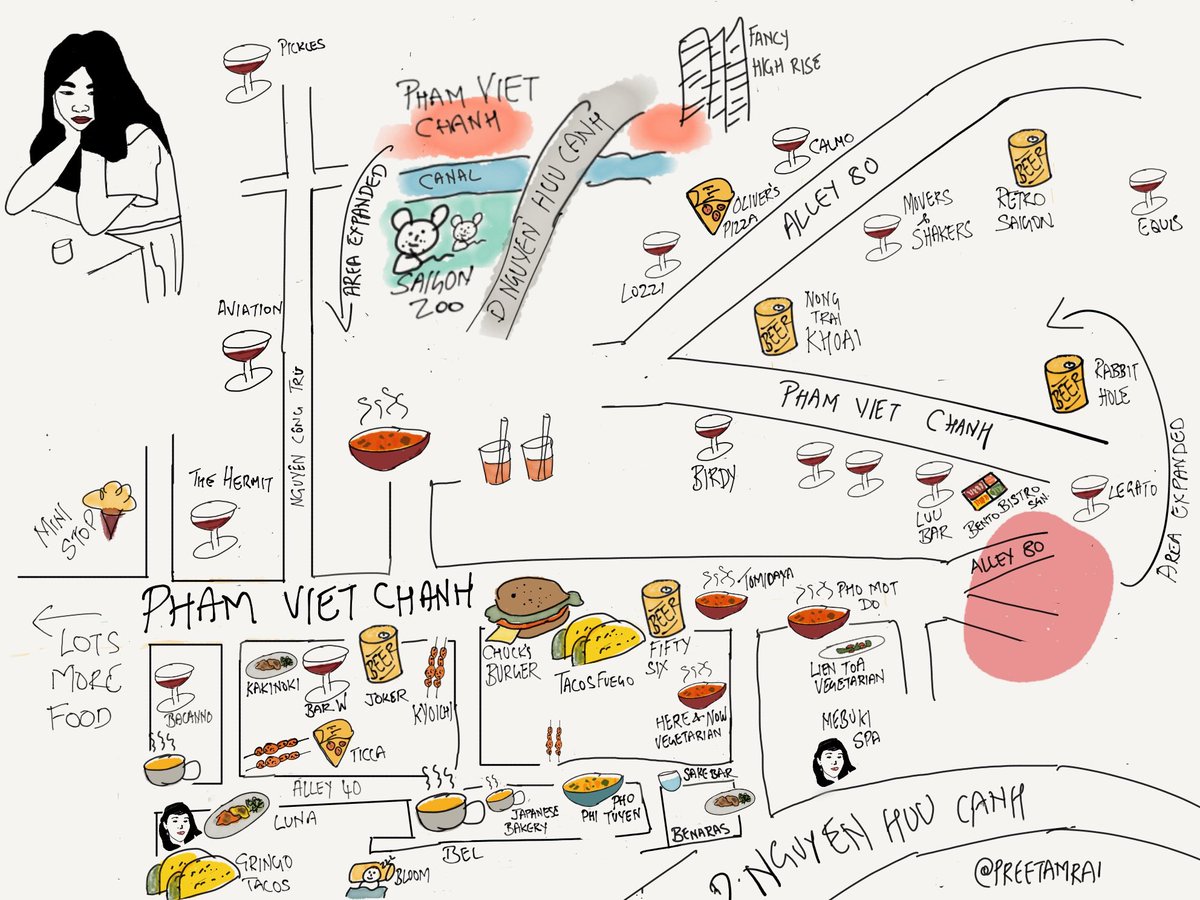 PICKLES
PHAM VIET
CHANH
CANAL
AREA EXPANDED
SAIGON
ZOO
D NGUYEN HUU CANH
FANCY
HIGH RISE
CALMO
OLIVER'S
PIZZA
LOZZI
ALLEY 80
MOVERS
&
SHAKERS
BEER
RETRO
SAIGON
EQUIS
AVIATION
NGUYÊN CÔNG TRỨ
BEER
NONG
TRAI
KHOAI
PHAM VIET CHANH
BEER
RABBIT
HOLE
AREA EXPANDED
MINI
STOP
THE HERMIT
BIRDY
LUU
BAR
BENTO
BISTRO
SGN.
LEGATO
ALLEY 80
PHAM VIET CHANH
LOTS
MORE
FOOD
BACANNO
KAKINOKI
BAR.W
BEER
JOKER
KYOICHI
TICCA
CHUCK'S
BURGER
TACOS FUEGO
BEER
FIFTY
SIX
TOMIDAYA
HERE & NOW
VEGETARIAN
PHO MOT
DO
LIEN TOA
VEGETARIAN
MEBUKI
SPA
ALLEY 40
LUNA
GRINGO
TACOS
BEL
JAPANESE
BAKERY
PHO
PHI TUYEN
SAKE BAR
BENARAS
ZZZ
BLOOM
D. NGUYEN HUU CANH
@PREETAMRAI